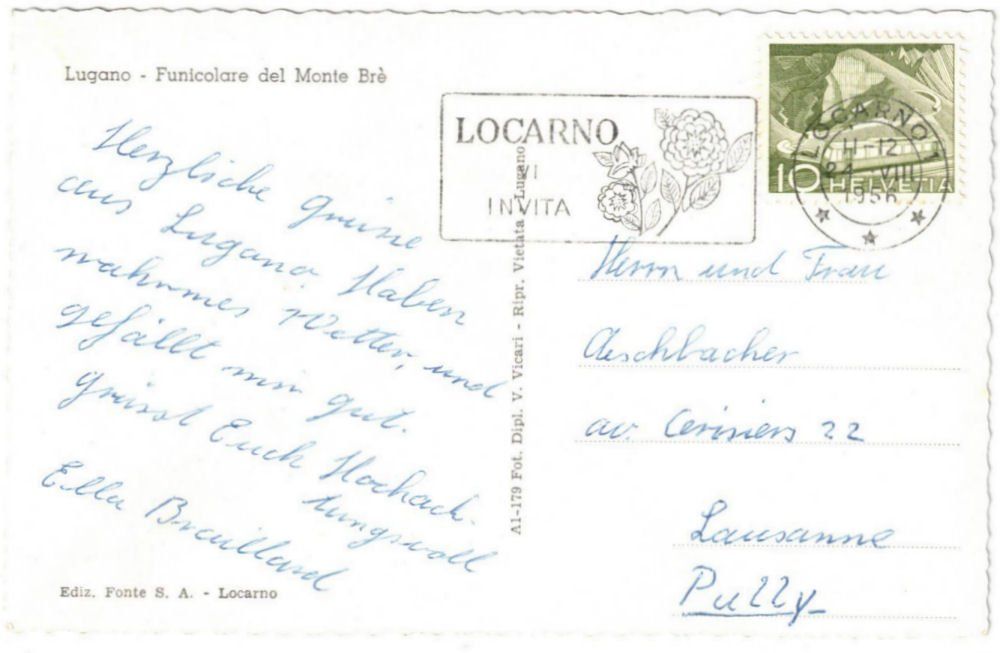 Lugano - Funicolare del Monte Brè
Herzliche Grüsse
aus Lugano. Haben
wahrmes Wetter, und
gefällt mir gut.
grüsst Euch Hochach-
tungsvoll
Ella Braillard
Ediz. Fonte S. A. - Locarno
A1-179 Fot. Dipl. V. Vicari - Ripr. Vietata - Lugano
LOCARNO
VI
INVITA
LOCARNO 1
24. VIII
1956
10 HELVETIA
Herrn und Frau
Aeschbacher
av. Cerisiers 22
Lausanne
Pully